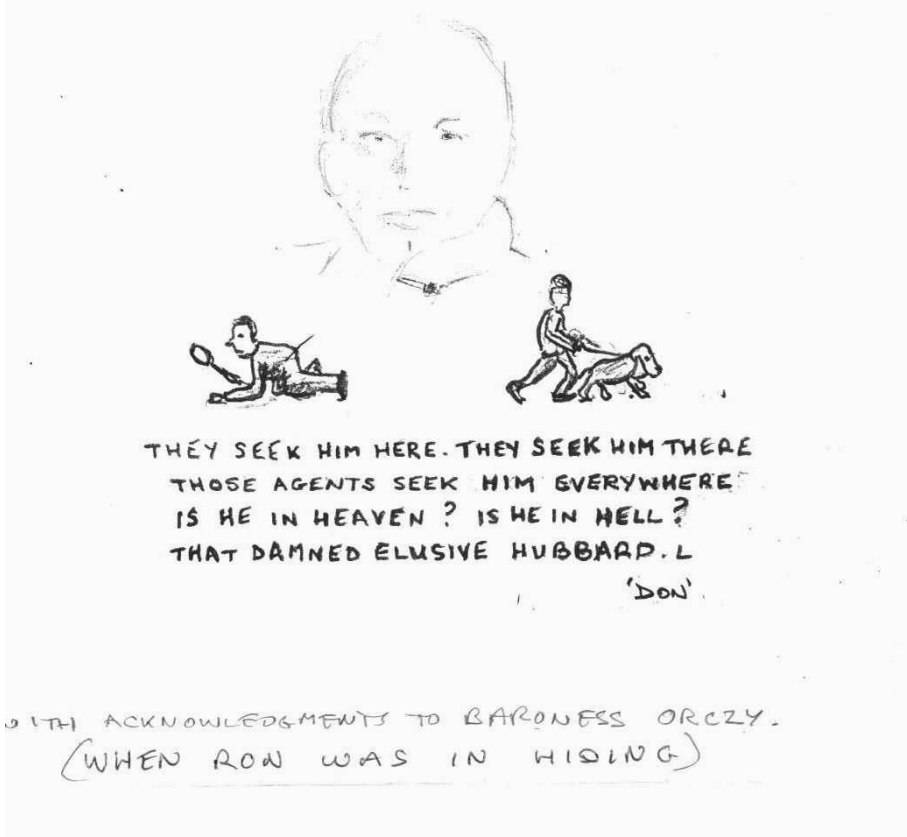 THEY SEEK HIM HERE. THEY SEEK HIM THERE
THOSE AGENTS SEEK HIM EVERYWHERE
IS HE IN HEAVEN? IS HE IN HELL?
THAT DAMNED ELUSIVE HUBBARD. L
'DON'.
WITH ACKNOWLEDGMENTS TO BARONESS ORCZY.
(WHEN RON WAS IN HIDING)